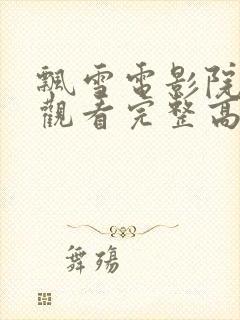 飄雪電影院
觀看完整高
舞殤